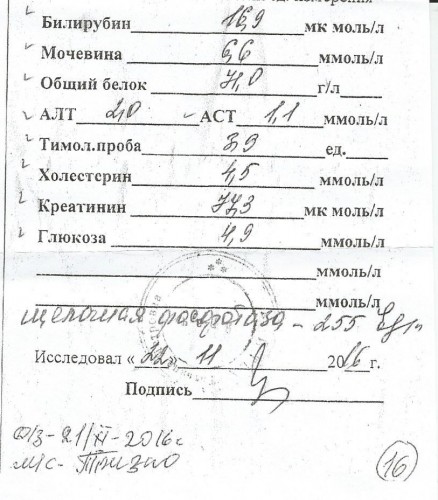 Билирубин 16,9 мк моль/л
Мочевина 6,6 ммоль/л
Общий белок 7,0 г/л
АЛТ 2,0 АСТ 1,1 ммоль/л
Тимол.проба 3,9 ед.
Холестерин 4,5 ммоль/л
Креатинин 77,3 мк моль/л
Глюкоза 4,9 ммоль/л
ммоль/л
ммоль/л
щелочная фосфотаза - 255 Ед/л
Исследовал « 22 » 11 2016 г.
Подпись
Ф/З-21/XI-2016г
м/с-
16